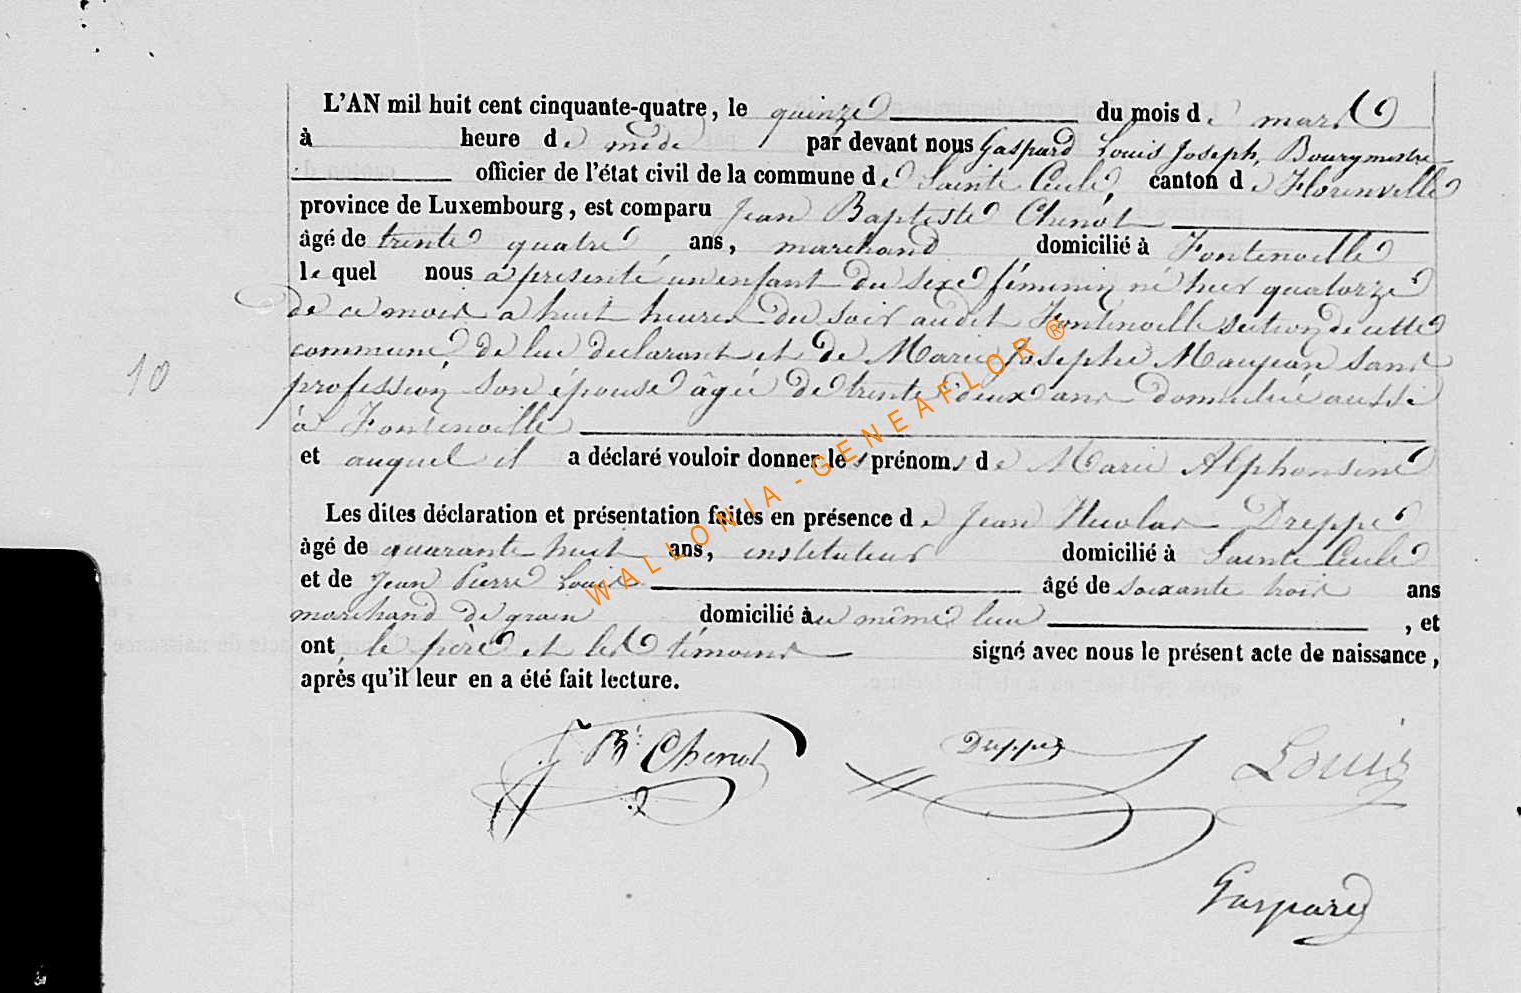 L'AN mil huit cent cinquante-quatre, le quinze du mois de mars
à heure de midi par devant nous Gaspard Louis Joseph, Bourgmestre
officier de l'état civil de la commune de Sainte Cecile canton de Florenville
province de Luxembourg, est comparu Jean Baptiste Chenot
âgé de trente quatre ans, marchand domicilié à Fontenoille
le quel nous a présenté un enfant du sexe féminin né hier quatorze
de ce mois a huit heures du soir audit Fontenoille section de cette
commune de lui declarant et de Marie Josephe Maujean sans
10
profession son épouse âgée de trente deux ans domiciliée aussi
à Fontenoille
et auquel il a déclaré vouloir donner les prénoms de Marie Alphonsine
Les dites déclaration et présentation faites en présence de Jean Nicolas Dreppe
âgé de quarante huit ans, instituteur domicilié à Sainte Cecile
et de Jean Pierre Louis âgé de soixante trois ans
marchand de grain domicilié au même lieu, et
ont le père et les témoins signé avec nous le présent acte de naissance,
après qu'il leur en a été fait lecture.
J. Bte Chenot Dreppe Louis
Gaspard
WALLONIA-GENEAFLOR ®